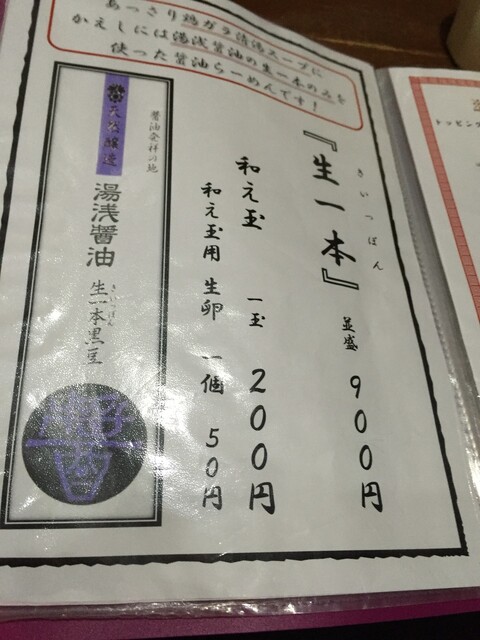 あっさり鶏ガラ清湯スープに
かえしには湯浅醤油の生一本のみを
使った醤油らーめんです！
きいっぽん
『生一本』 並盛 900円
和え玉 一玉 200円
和え玉用 生卵 一個 50円
醤油発祥の地
天然醸造
湯浅醤油
きいっぽん
生一本黒豆
トッピング